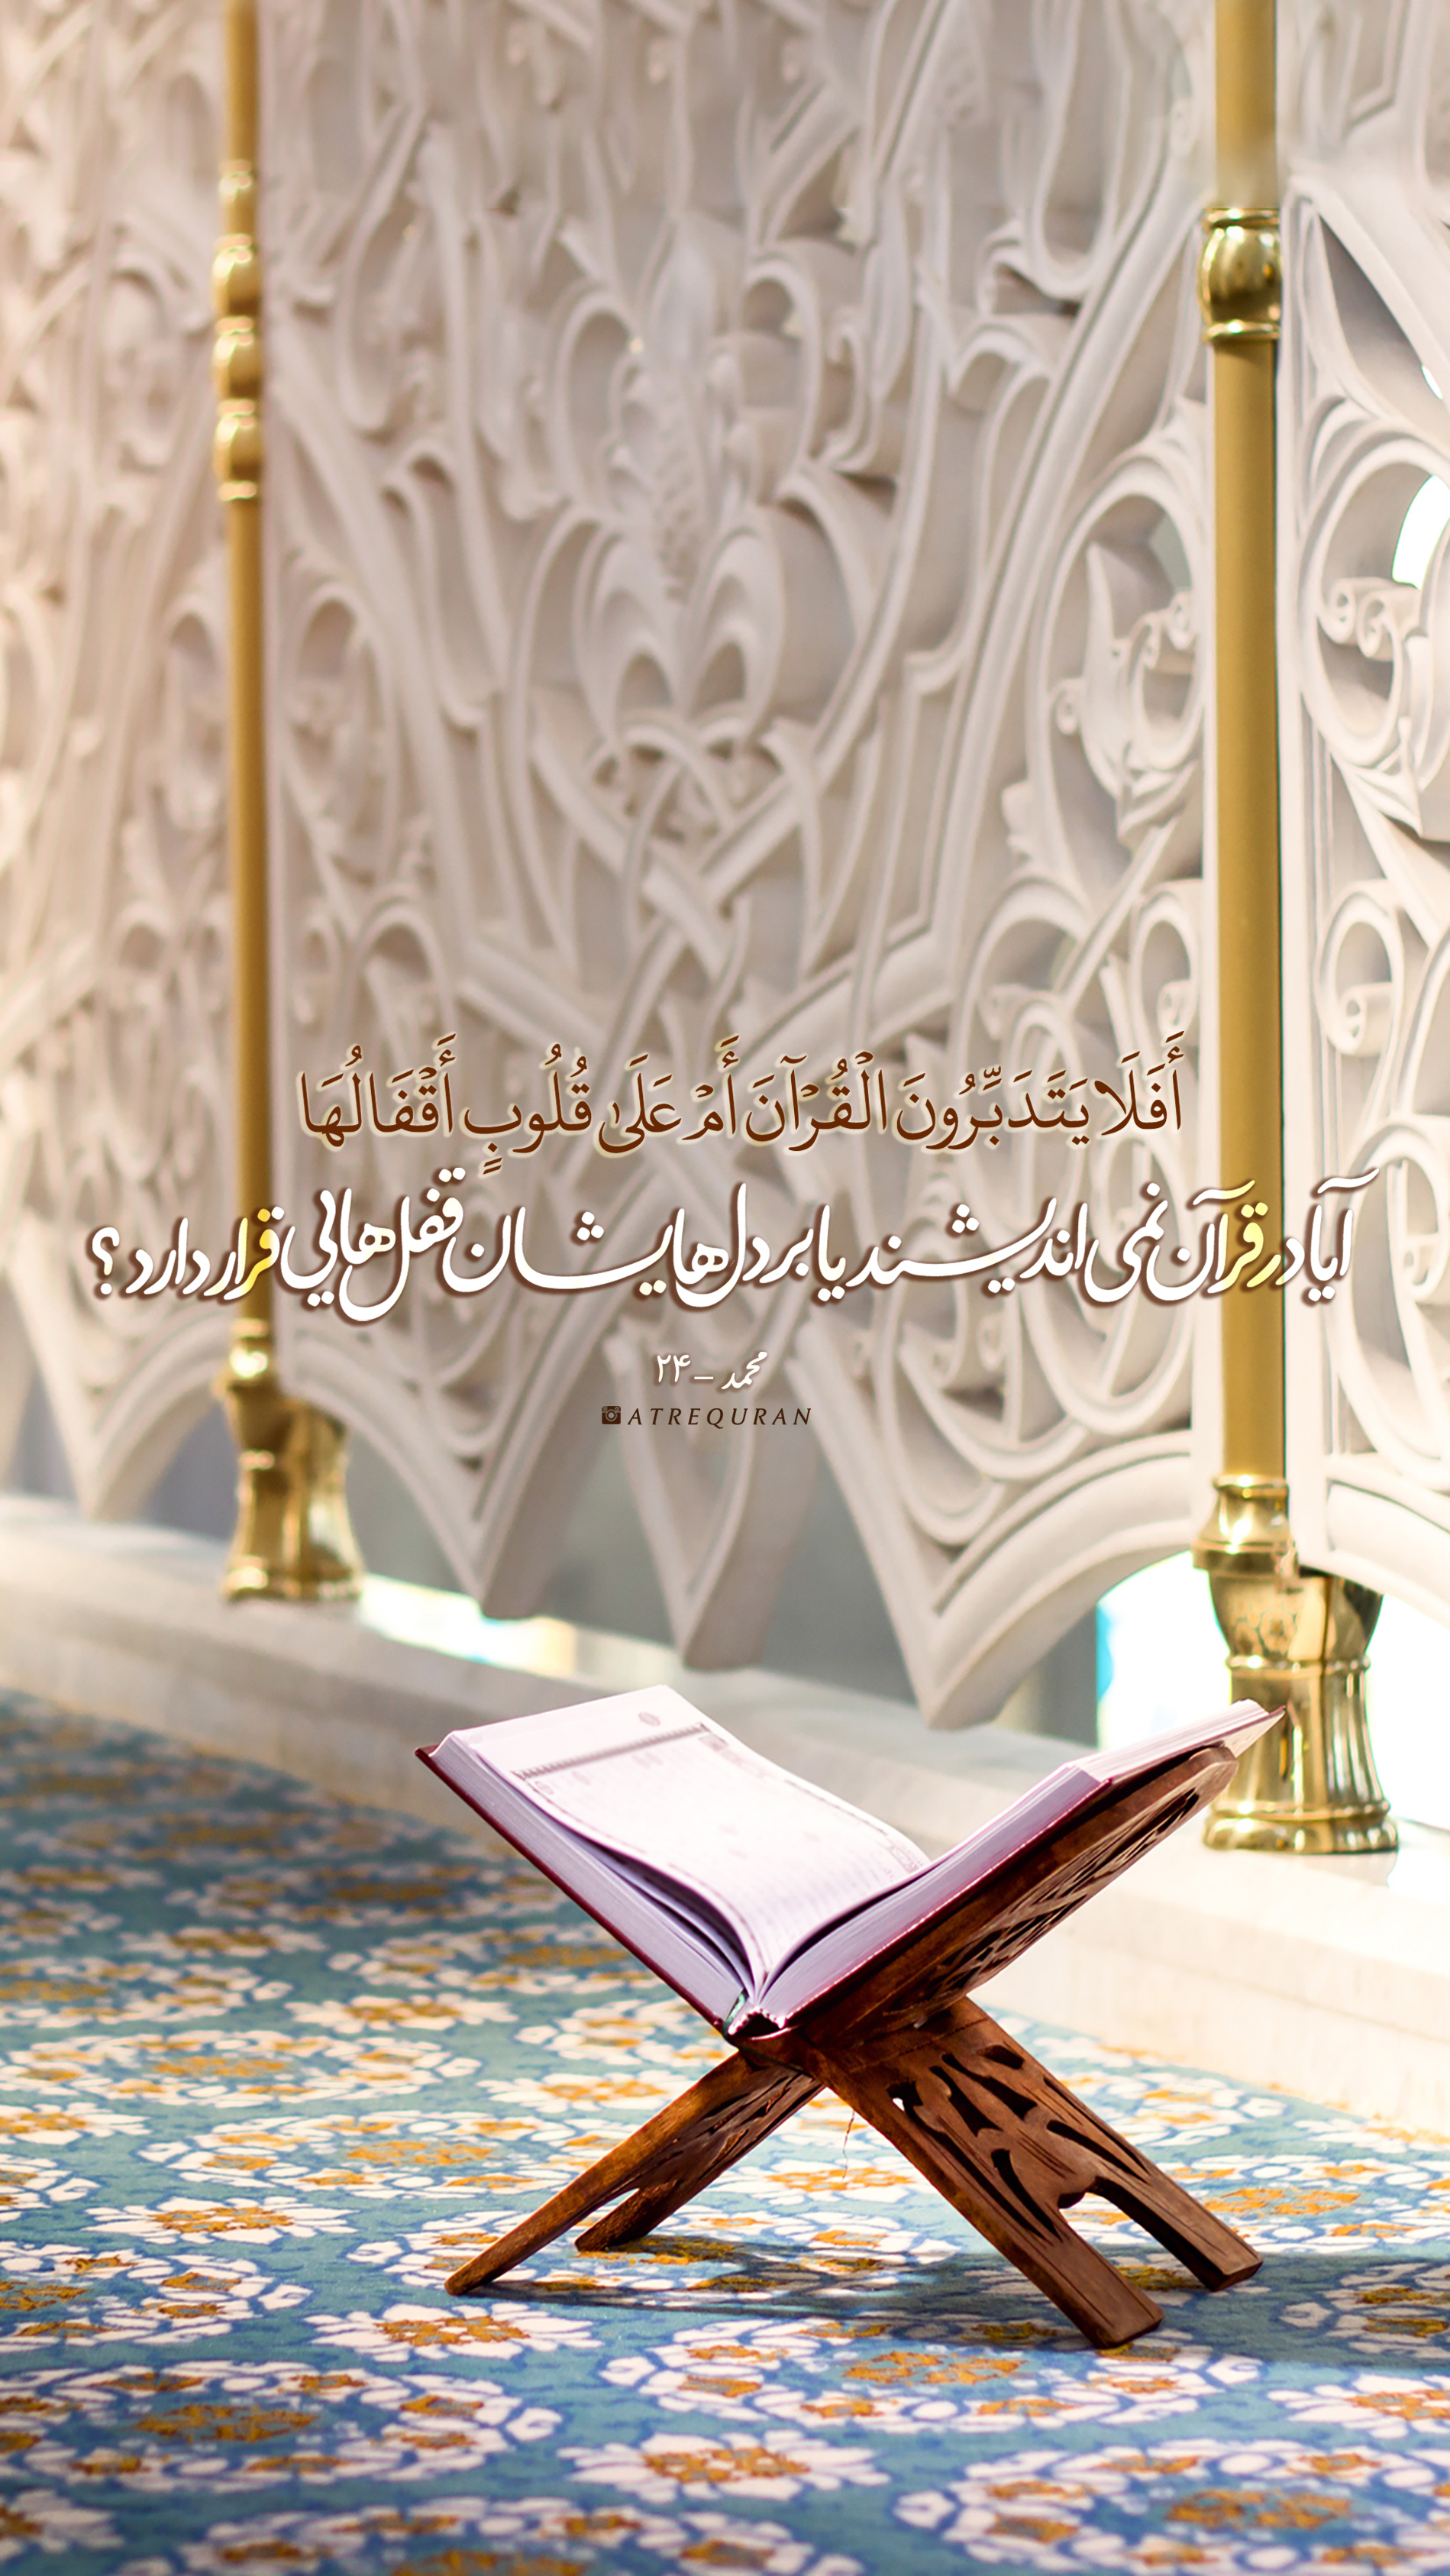 أَفَلَا يَتَدَبَّرُونَ الْقُرْآنَ أَمْ عَلَىٰ قُلُوبٍ أَقْفَالُهَا
آیا در قرآن نمی اندیشند یا بر دل هایشان قفل هایی قرار دارد ؟
محمد - ۲۴
ATREQURAN